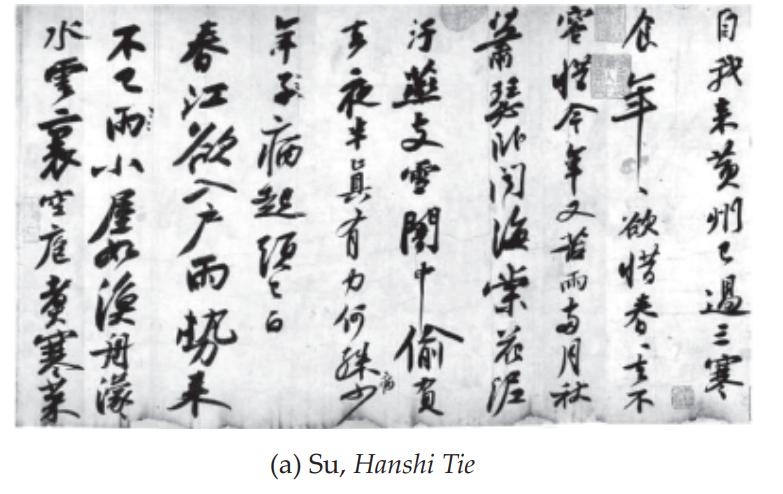 自我來黃州已過三寒
食年〻欲惜春〻去不
容惜今年又苦雨兩月秋
蕭瑟卧聞海棠花泥
汙燕支雪闇中偷負
去夜半真有力何殊病少
年子病起頭已白
春江欲入戶雨勢來
不已雨小屋如漁舟濛〻
水雲裏空庖煮寒菜
(a) Su, Hanshi Tie